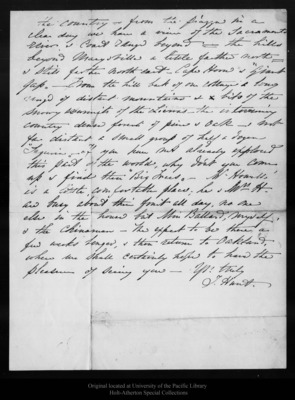 the country - from the piazza in a
clear day we have a view of the Sacramento
River & Coast Range beyond - the hills
beyond Marysville a little farther north -
& Still farther north east Cape Horn & "Giant
Gap" - From the hill back of our cottage a long
range of distant mountains & a bit of the
snowy summits of the Sierras the intervening
country dense forest of pine & oak - not
far distant a small group of half a dozen
If you have not already explored
this part of the world, why don't you come
up & find these Big trees, - Mr Howell's
is a little comfortable place, he & Mrs H.
are busy about their fruit all day, no one
else in the house but Mrs Ballard, myself,
& the Chinaman - the expect to be there a
few weeks longer, & then return to Oakland,
where we shall certainly hope to have the
pleasure of seeing you - Yrs truly
Original located at University of the Pacific Library
Holt-Atherton Special Collections